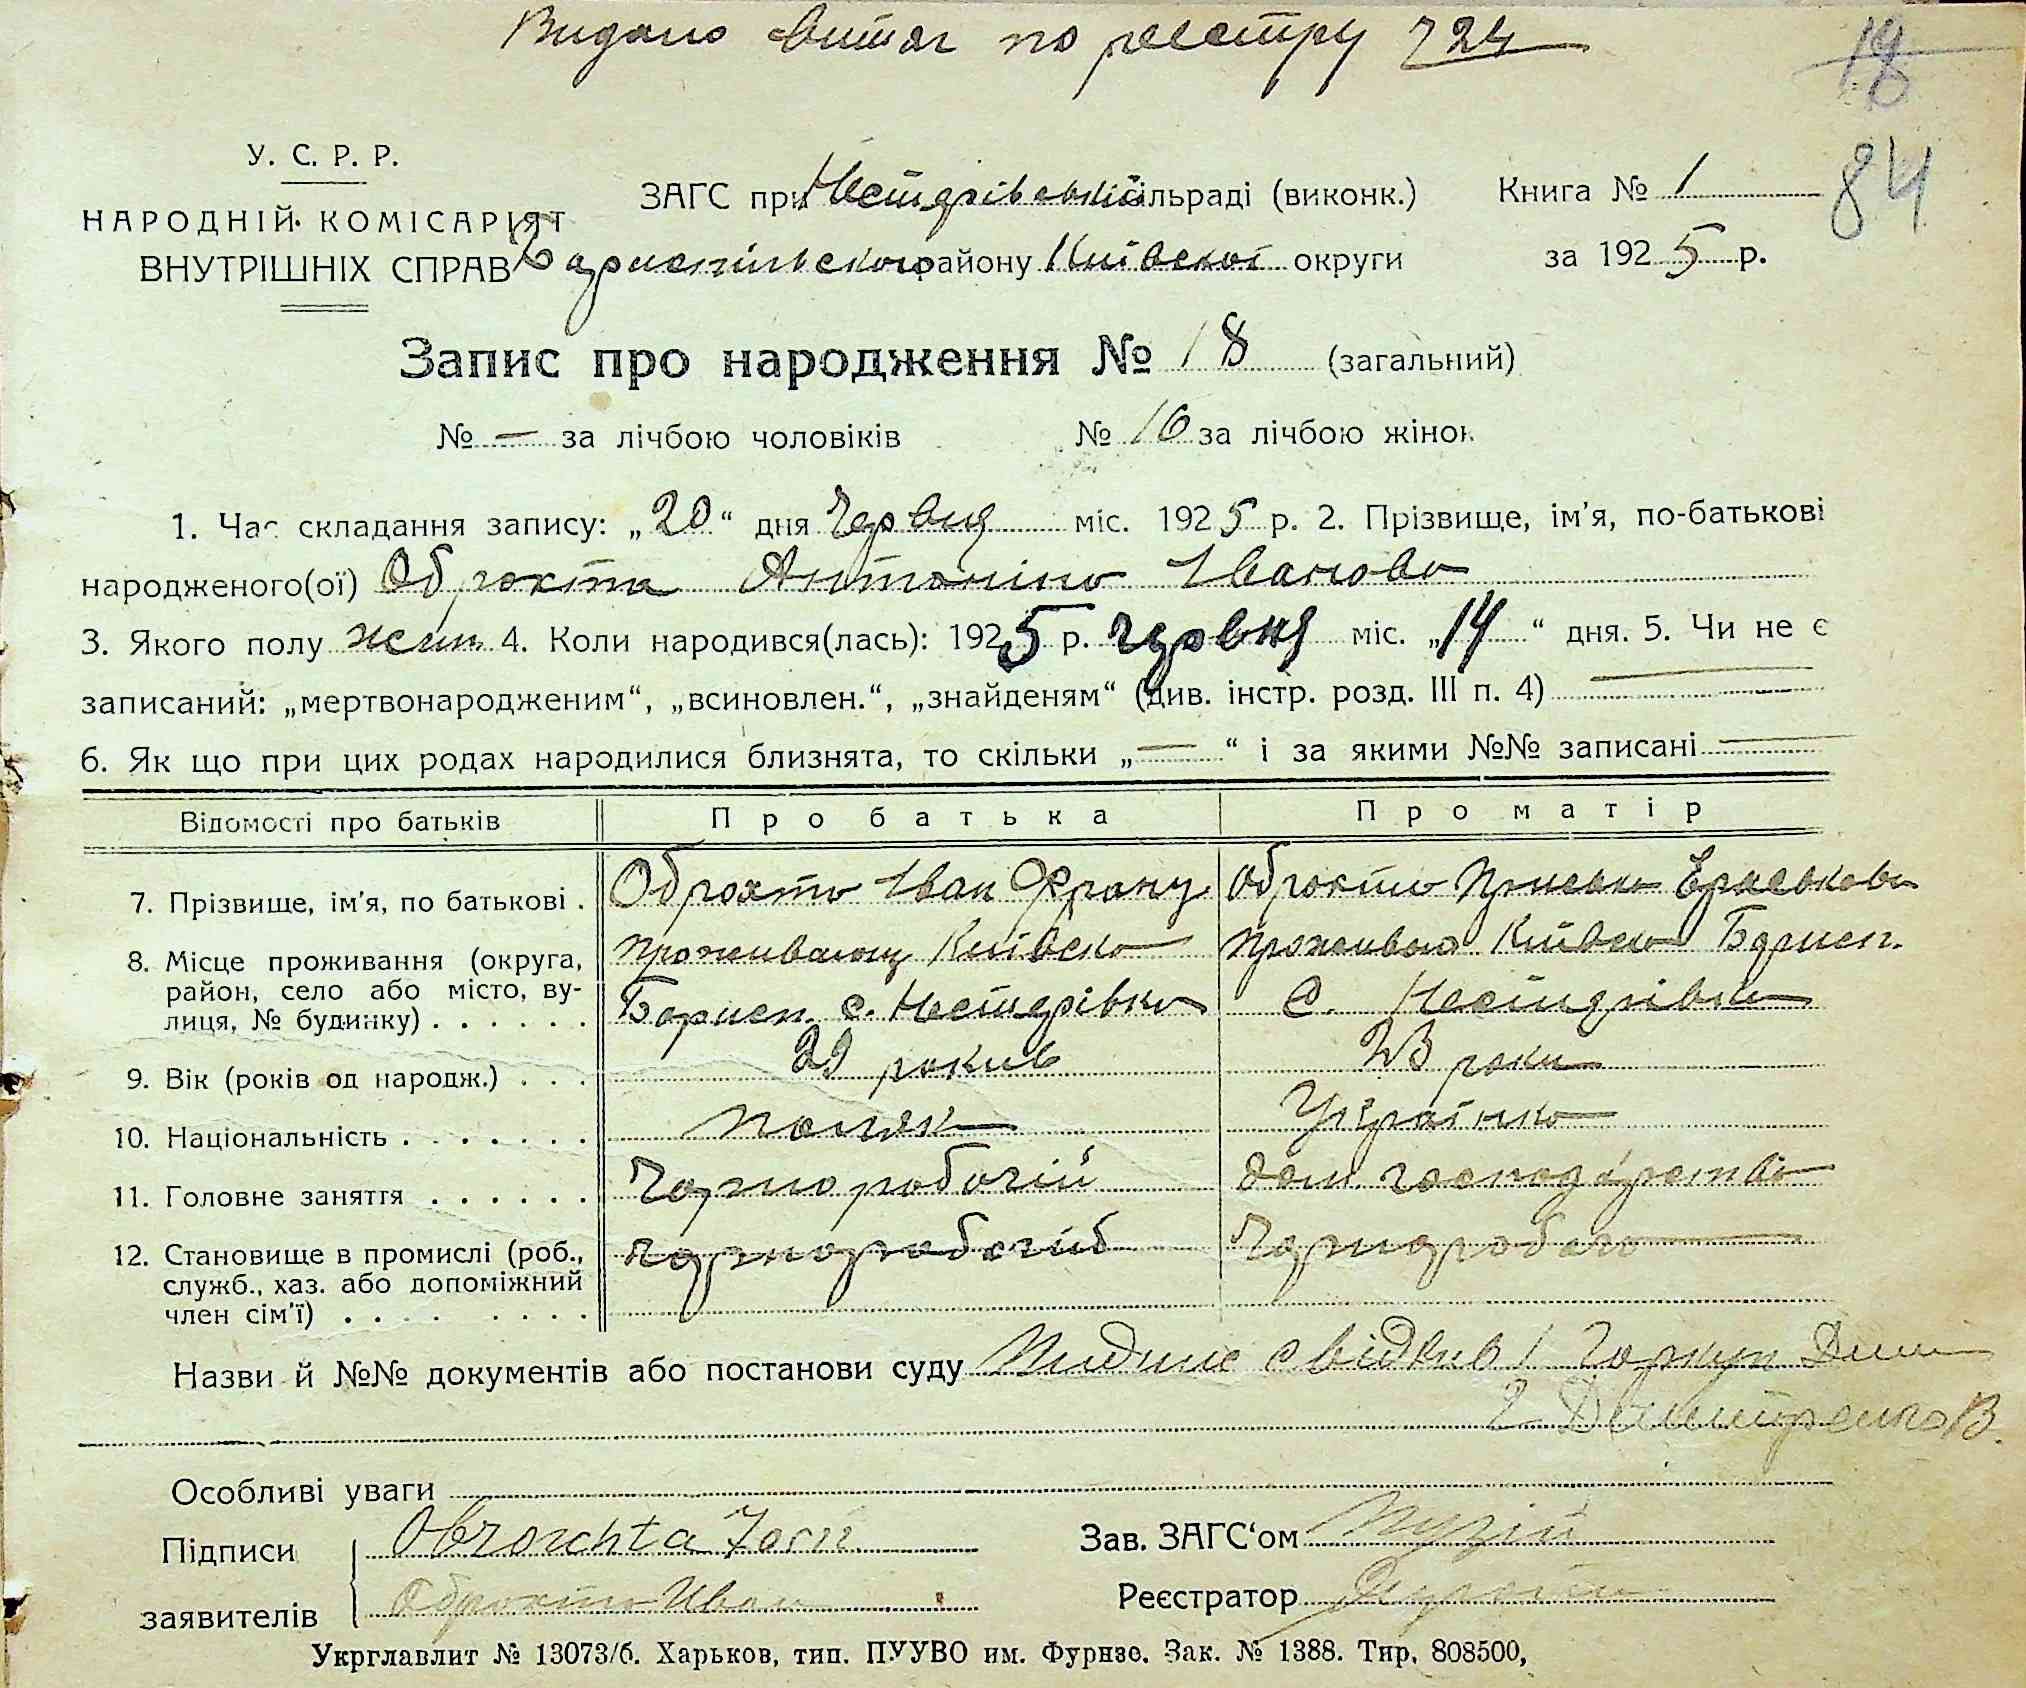 Видано витяг по реєстру 724
18
84
У. С. Р. Р.
НАРОДНІЙ КОМІСАРІЯТ
ВНУТРІШНІХ СПРАВ
ЗАГС при Нестерівській сільраді (виконк.)
Бориспільского району Київскої округи
Книга № 1
за 1925 р.
Запис про народження № 18 (загальний)
№ — за лічбою чоловіків № 16 за лічбою жінок
1. Час складання запису: „20“ дня Червня міс. 1925 р. 2. Прізвище, ім'я, по-батькові
народженого(ої) Оброхта Антоніна Іванова
3. Якого полу жін. 4. Коли народився(лась): 1925 р. Червня міс. „14“ дня. 5. Чи не є
записаний: „мертвонародженим“, „всиновлен.“, „знайденям“ (див. інстр. розд. III п. 4) —
6. Як що при цих родах народилися близнята, то скільки „—“ і за якими №№ записані —
Відомості про батьків Про батька Про матір
7. Прізвище, ім'я, по батькові . Оброхта Іван Франц. Оброхта Приська
8. Місце проживання (округа, район, село або місто, вулиця, № будинку) . . . . . .
Київска
Борисп. с.
Київска Борисп.
с.
9. Вік (років од народж.) . . . 29 рокив 23 роки
10. Національність . . . . . . . поляк Українка
11. Головне заняття . . . . . . Чорноробочій дом господарство
12. Становище в промислі (роб.,
служб., хаз. або допоміжний
член сім'ї) . . . . . . . .
Чорноробочій
Назви й №№ документів або постанови суду свідків 1
2 В.
Особливі уваги
Підписи Obrochta
заявителів Оброхта Иван
Зав. ЗАГС‘ом
Реєстратор
Укрглавлит № 13073/б. Харьков, тип. ПУУВО им. Фурнзе. Зак. № 1388. Тир. 808500,